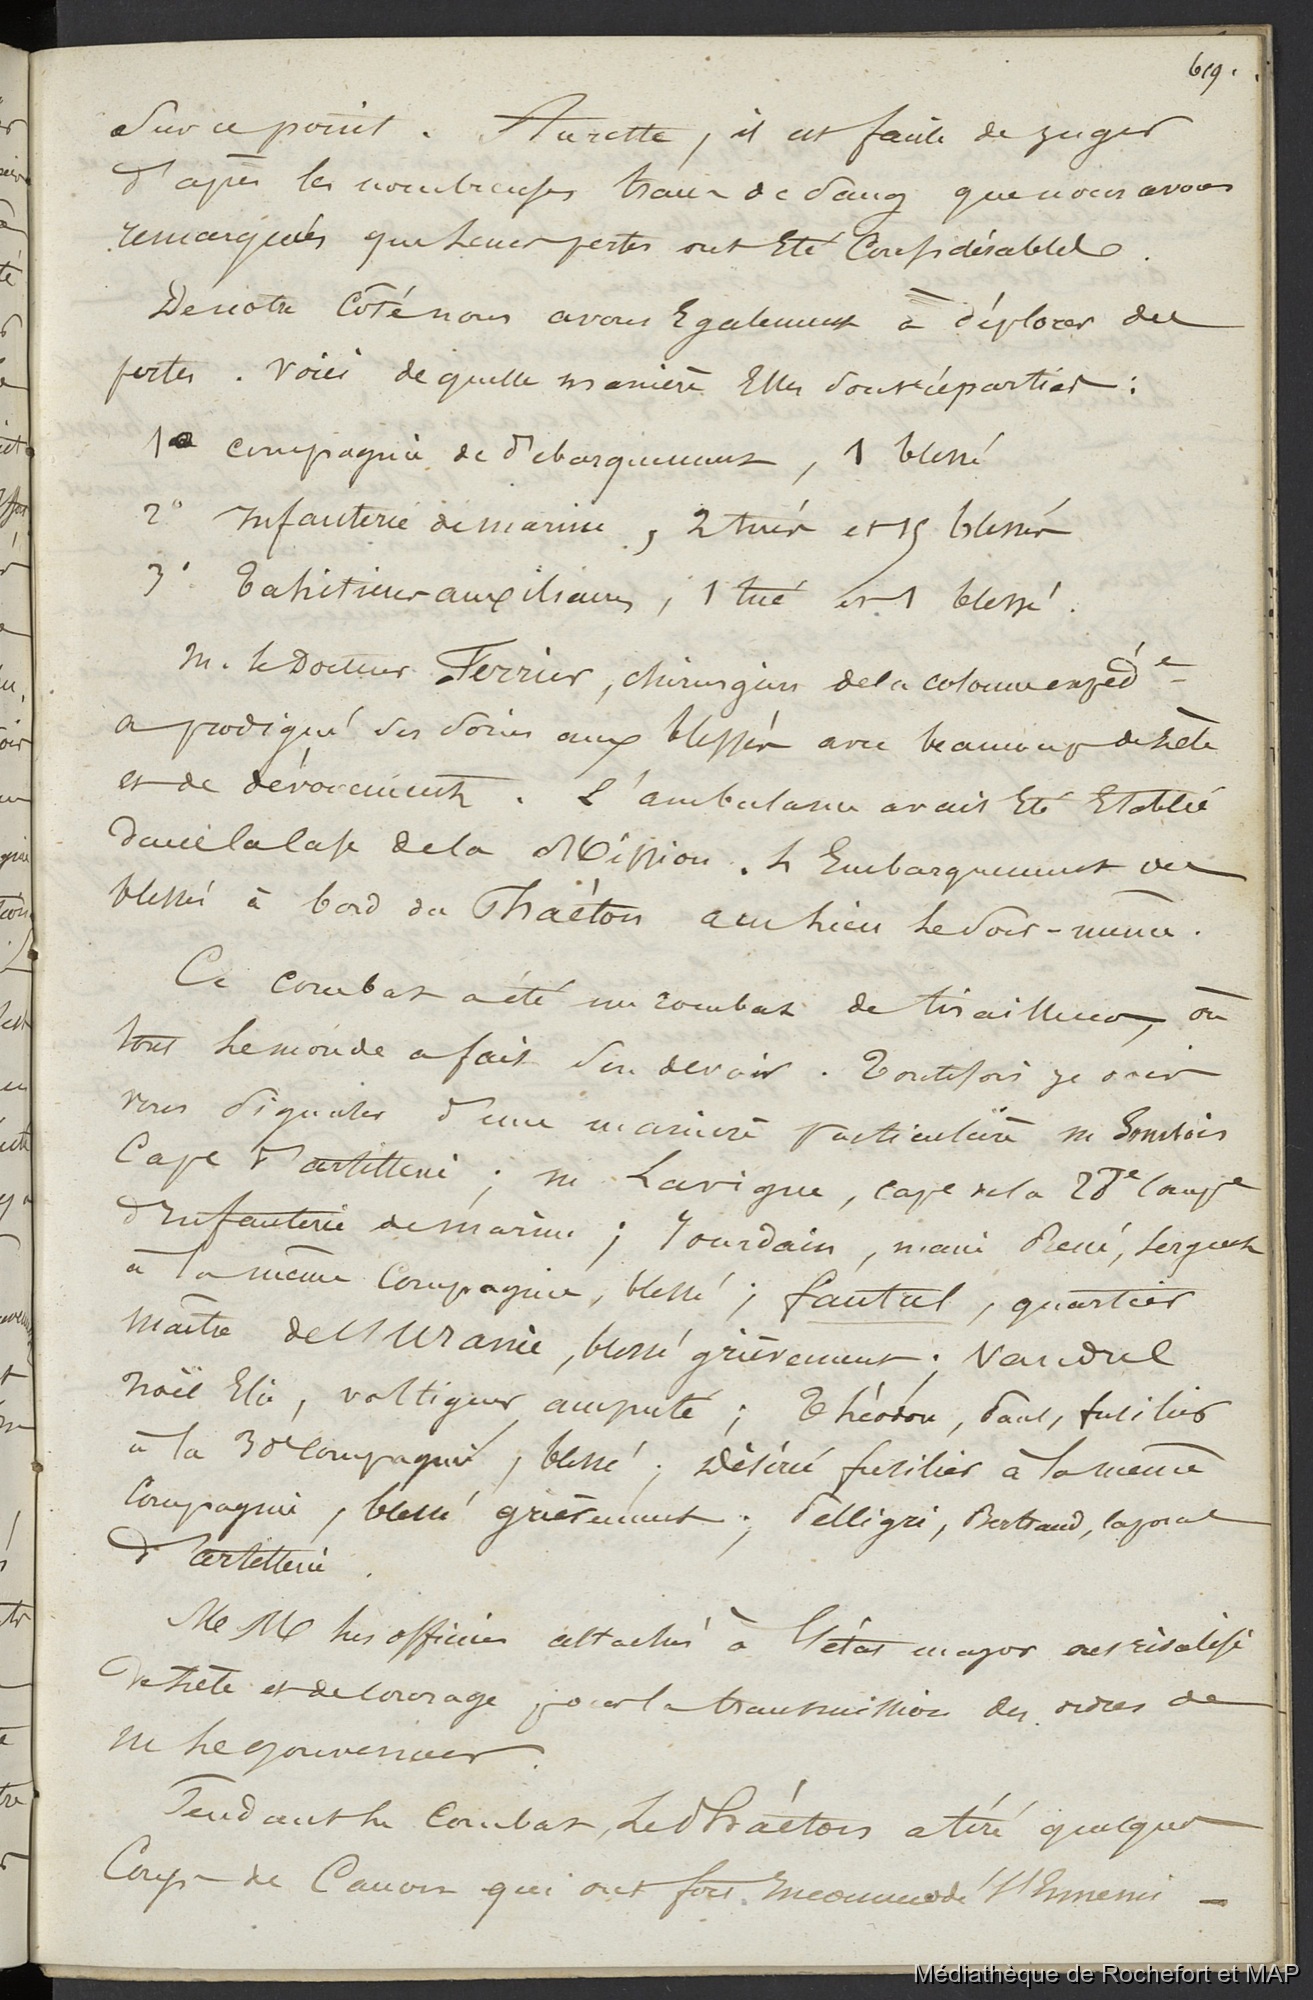 619.
Sur ce point. Au reste, il est facile de juger
d'après les nombreuses traces de sang que nous avons
remarqués que leurs pertes ont Eté Considérables.
De notre Côté nous avons Egalement à déplorer des
pertes. Voici de quelle manière Elles sont réparties :
1o compagnie de débarquement, 1 blessé
2o Infanterie de marine, 2 tués et 15 blessés
3o Tahitiens auxiliaires, 1 tué et 1 blessé.
M. le Docteur Ferrier, chirurgien de la colonne expéd.e
a prodigué ses soins aux blessés avec beaucoup de zèle
et de dévouement. L'ambulance avait Eté Etablie
dans la Case de la Mission. L'Embarquement des
blessés à bord du Phaéton a eu lieu le soir-même.
Ce combat a été un combat de tirailleurs, où
tout le monde a fait son devoir. Toutefois je dois
vous signaler d'une manière particulière m
Cape d'artillerie ; m Lavigne, cape de la 28e Compe
d'Infanterie de marine ; Jourdain, marie René, sergent
à la même Compagnie, blessé ; fautrel, quartier
maître de l'Uranie, blessé grièvement ; Vandrel
Noël Elie, voltigeur amputé ; Théodon, Paul, fusilier
à la 30e Compagnie, blessé ; Désiré fusilier à la même
Compagnie, blessé grièvement ; Pelligri, Bertrand, caporal
d'artillerie.
MM les officiers attachés à l'état major ont rivalisé
de zèle et de courage pour la transmission des ordres de
m le gouverneur.
Pendant le Combat, le Phaéton a tiré quelques
Coups de Canon qui ont fort Incommodé l'Ennemi -
Médiathèque de Rochefort et MAP